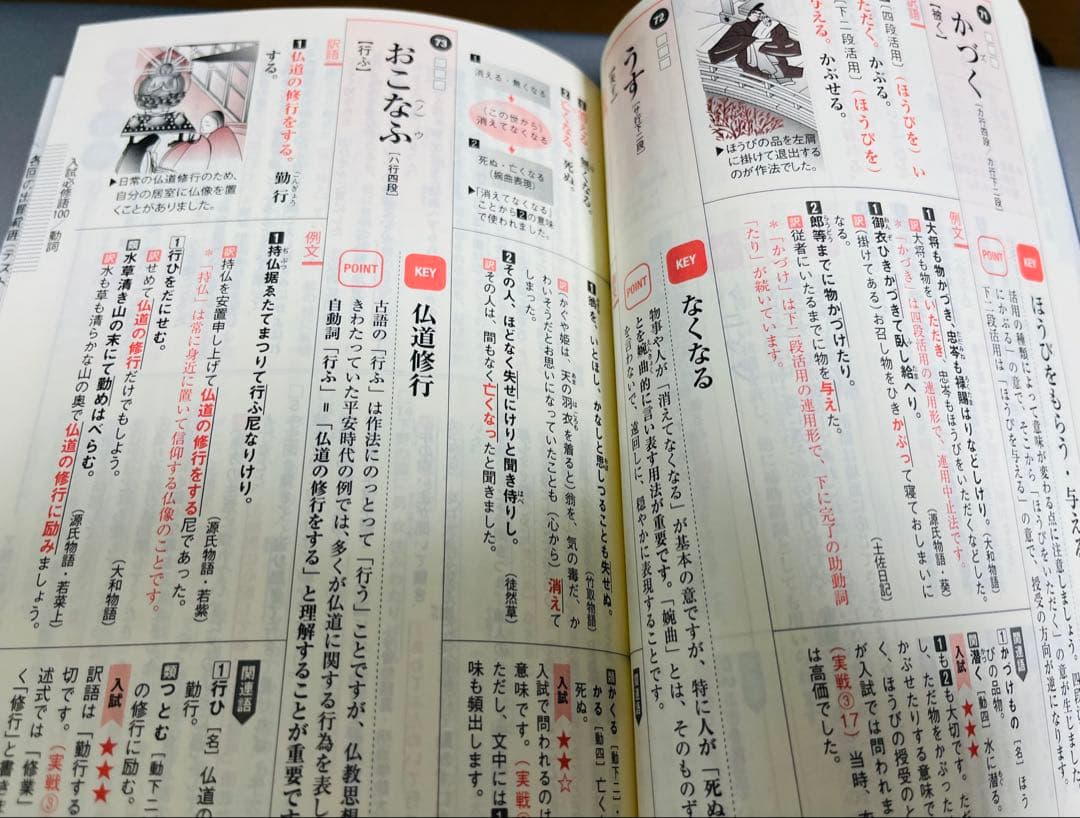 71
かづく
[カ行四段 カ行下二段]
【被く】
訳語
[四段活用]
ただく。かぶる。
(ほうびを)い
[下二段活用]
(ほうびを)
与える。かぶせる。
▶ほうびの品を左肩
に掛けて退出する
のが作法でした。
KEY
ほうびをもらう・与える
POINT
活用の種類によって意味が変わる点に注意しましょう。
にかぶる」の意で、そこから「ほうびをいただく」の意が生じま
下二段活用は「ほうびを与える」の意で、授受の方向が逆になります。
例文
1大将も物かづき、忠岑も禄賜はりなどしけり。(大和物語)
訳大将も物をいただき、忠岑もほうびをいただくなどした。
*「かづき」は四段活用の連用形で、連用中止法です。
1御衣ひきかづきて臥し給へり。(源氏物語・葵)
訳(掛けてある)お召し物をひきかぶって寝ておしまいに
なる。
2郎等までに物かづけたり。(土佐日記)
訳従者にいたるまでに物を与えた。
*「かづけ」は下二段活用の連用形で、下に完了の助動詞
「たり」が続いています。
関連語
1かづけもの[名]ほう
びの品物。
関潜く[動四]水に潜る。
入試★★★
1も2も大切です。
し、ただ物をかぶった
かぶせたりする意味で
く、ほうびの授受のと
が入試では問われま
(実戦③17)当時、
は高価でした。
72
うす
[サ行下二段]
1消える。無くなる。
2亡くなる。死ぬ。
1
消える・無くなる
(この世から)
消えてなくなる
2
死ぬ・亡くなる
(婉曲表現)
▶「消えてなくなる」
ことから2の意味
で使われました。
KEY
なくなる
POINT
物事や人が「消えてなくなる」が基本の意ですが、特に人が「死ぬ
ことを婉曲的に言い表す用法が重要です。「婉曲」とは、そのものず
を言わないで、遠回しに、穏やかに表現することです。
1翁を、いとほし、かなしと思しつることも失せぬ。
(竹取物語)
訳かぐや姫は、天の羽衣を着ると)翁を、気の毒だ、か
わいそうだとお思いになっていたことも(心から)消えて
しまった。
2その人、ほどなく失せにけりと聞き侍りし。
(徒然草)
訳その人は、間もなく亡くなったと聞きました。
関連語
類かくる[動下二
かる[動四]亡く
死ぬ。
入試★★☆
入試で問われるのは
意味です。(実戦
ただし、文中には1
味も頻出します。
73
おこなふ
[ハ行四段]
【行ふ】
訳語
1仏道の修行をする。勤行
する。
▶日常の仏道修行のため、
自分の居室に仏像を置
くことがありました。
KEY
仏道修行
POINT
古語の「行ふ」は作法にのっとって「行う」ことですが、仏教思想
きわたっていた平安時代の例では、多くが仏道に関する行為を表し
自動詞「行ふ」=「仏道の修行をする」と理解することが重要で
例文
1持仏据ゑたてまつりて行ふ尼なりけり。
(源氏物語・若紫)
訳持仏を安置申し上げて仏道の修行をする尼であった。
*「持仏」は常に身近に置いて信仰する仏像のことです。
1行ひをだにせむ。
(大和物語)
訳せめて仏道の修行だけでもしよう。
類水草清き山の末にて勤めはべらむ。
(源氏物語・若菜上)
訳水も草も清らかな山の奥で仏道の修行に励みましょう。
関連語
1行ひ[名]仏道の
勤行。
類つとむ[動下二
の修行に励む。
入試★★★
訳語は「勤行する
切です。(実戦③
述式では「修業」
く「修行」と書きま
入試必修語100 動詞